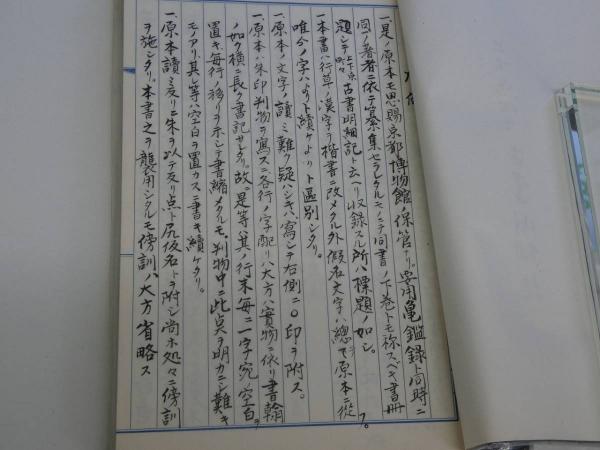 凡例
一、是ノ原本モ恩賜京都博物館ノ保管ナリ。要用亀鑑録ト同時ニ
同一ノ著者ニ依テ纂集セラレタルモノニテ同書ノ下巻トモ称スベキ書冊
題シテ古書明細記ト云ヘリ収録スル所ハ標題ノ如シ。
一、本書ハ行草ノ漢字ヲ楷書ニ改メタル外假名文字ハ總テ原本ニ従フ。
唯今ノ字ハ ト續ケ ト區別シタリ。
一、原本ノ文字ノ讀ミ難ク疑ハシキハ寫シテ右側ニ〇印ヲ附ス。
一、原本ハ朱印判物ヲ寫スニ各行ノ字配リハ大方ハ實物ニ依リ書翰
ノ如ク横ニ長ク書記サレタリ。故ニ是等ハ其ノ行末毎ニ一字宛ノ空白ヲ
置キ毎行ノ移リヲ示シテ書縮メタルモ、判物中ニ此点ヲ明カニシ難キ
モノアリ其レ等ハ空白ヲ置カズニ書キ續ケタリ。
一、原本讀ミ亥リニ朱ヲ以テ反リ点ト尻仮名トヲ附シ尚ホ処々ニ傍訓
ヲ施シタリ本書之ヲ襲用シタルモ傍訓ハ大方省略ス